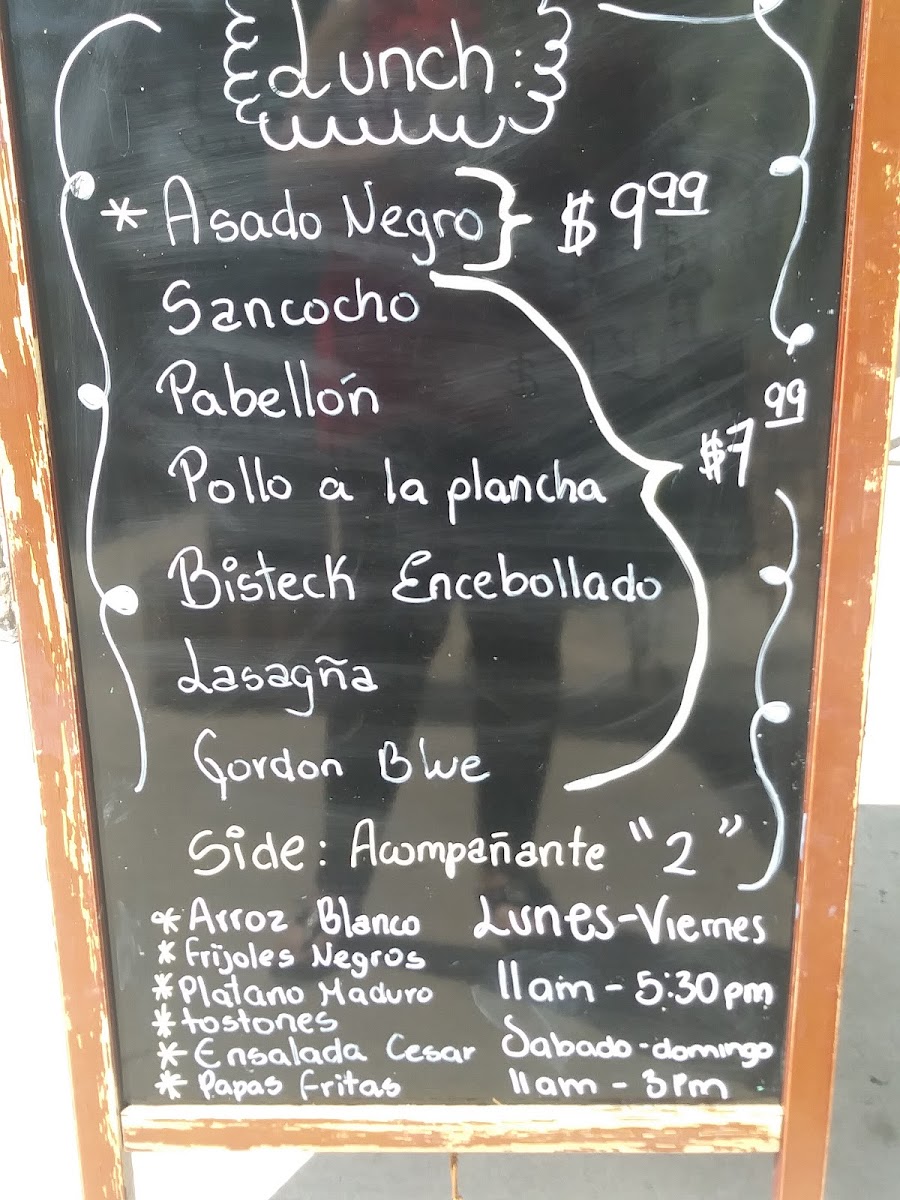 Lunch:
* Asado Negro } $9.99
Sancocho
Pabellón
$7.99
Pollo a la plancha
Bisteck Encebollado
Lasagña
Gordon Blue
Side: Acompañante "2"
* Arroz Blanco
* Frijoles Negros
* Platano Maduro
* tostones
* Ensalada Cesar
* Papas Fritas
Lunes-Viernes
11am - 5:30pm
Sabado-domingo
11am - 3Pm